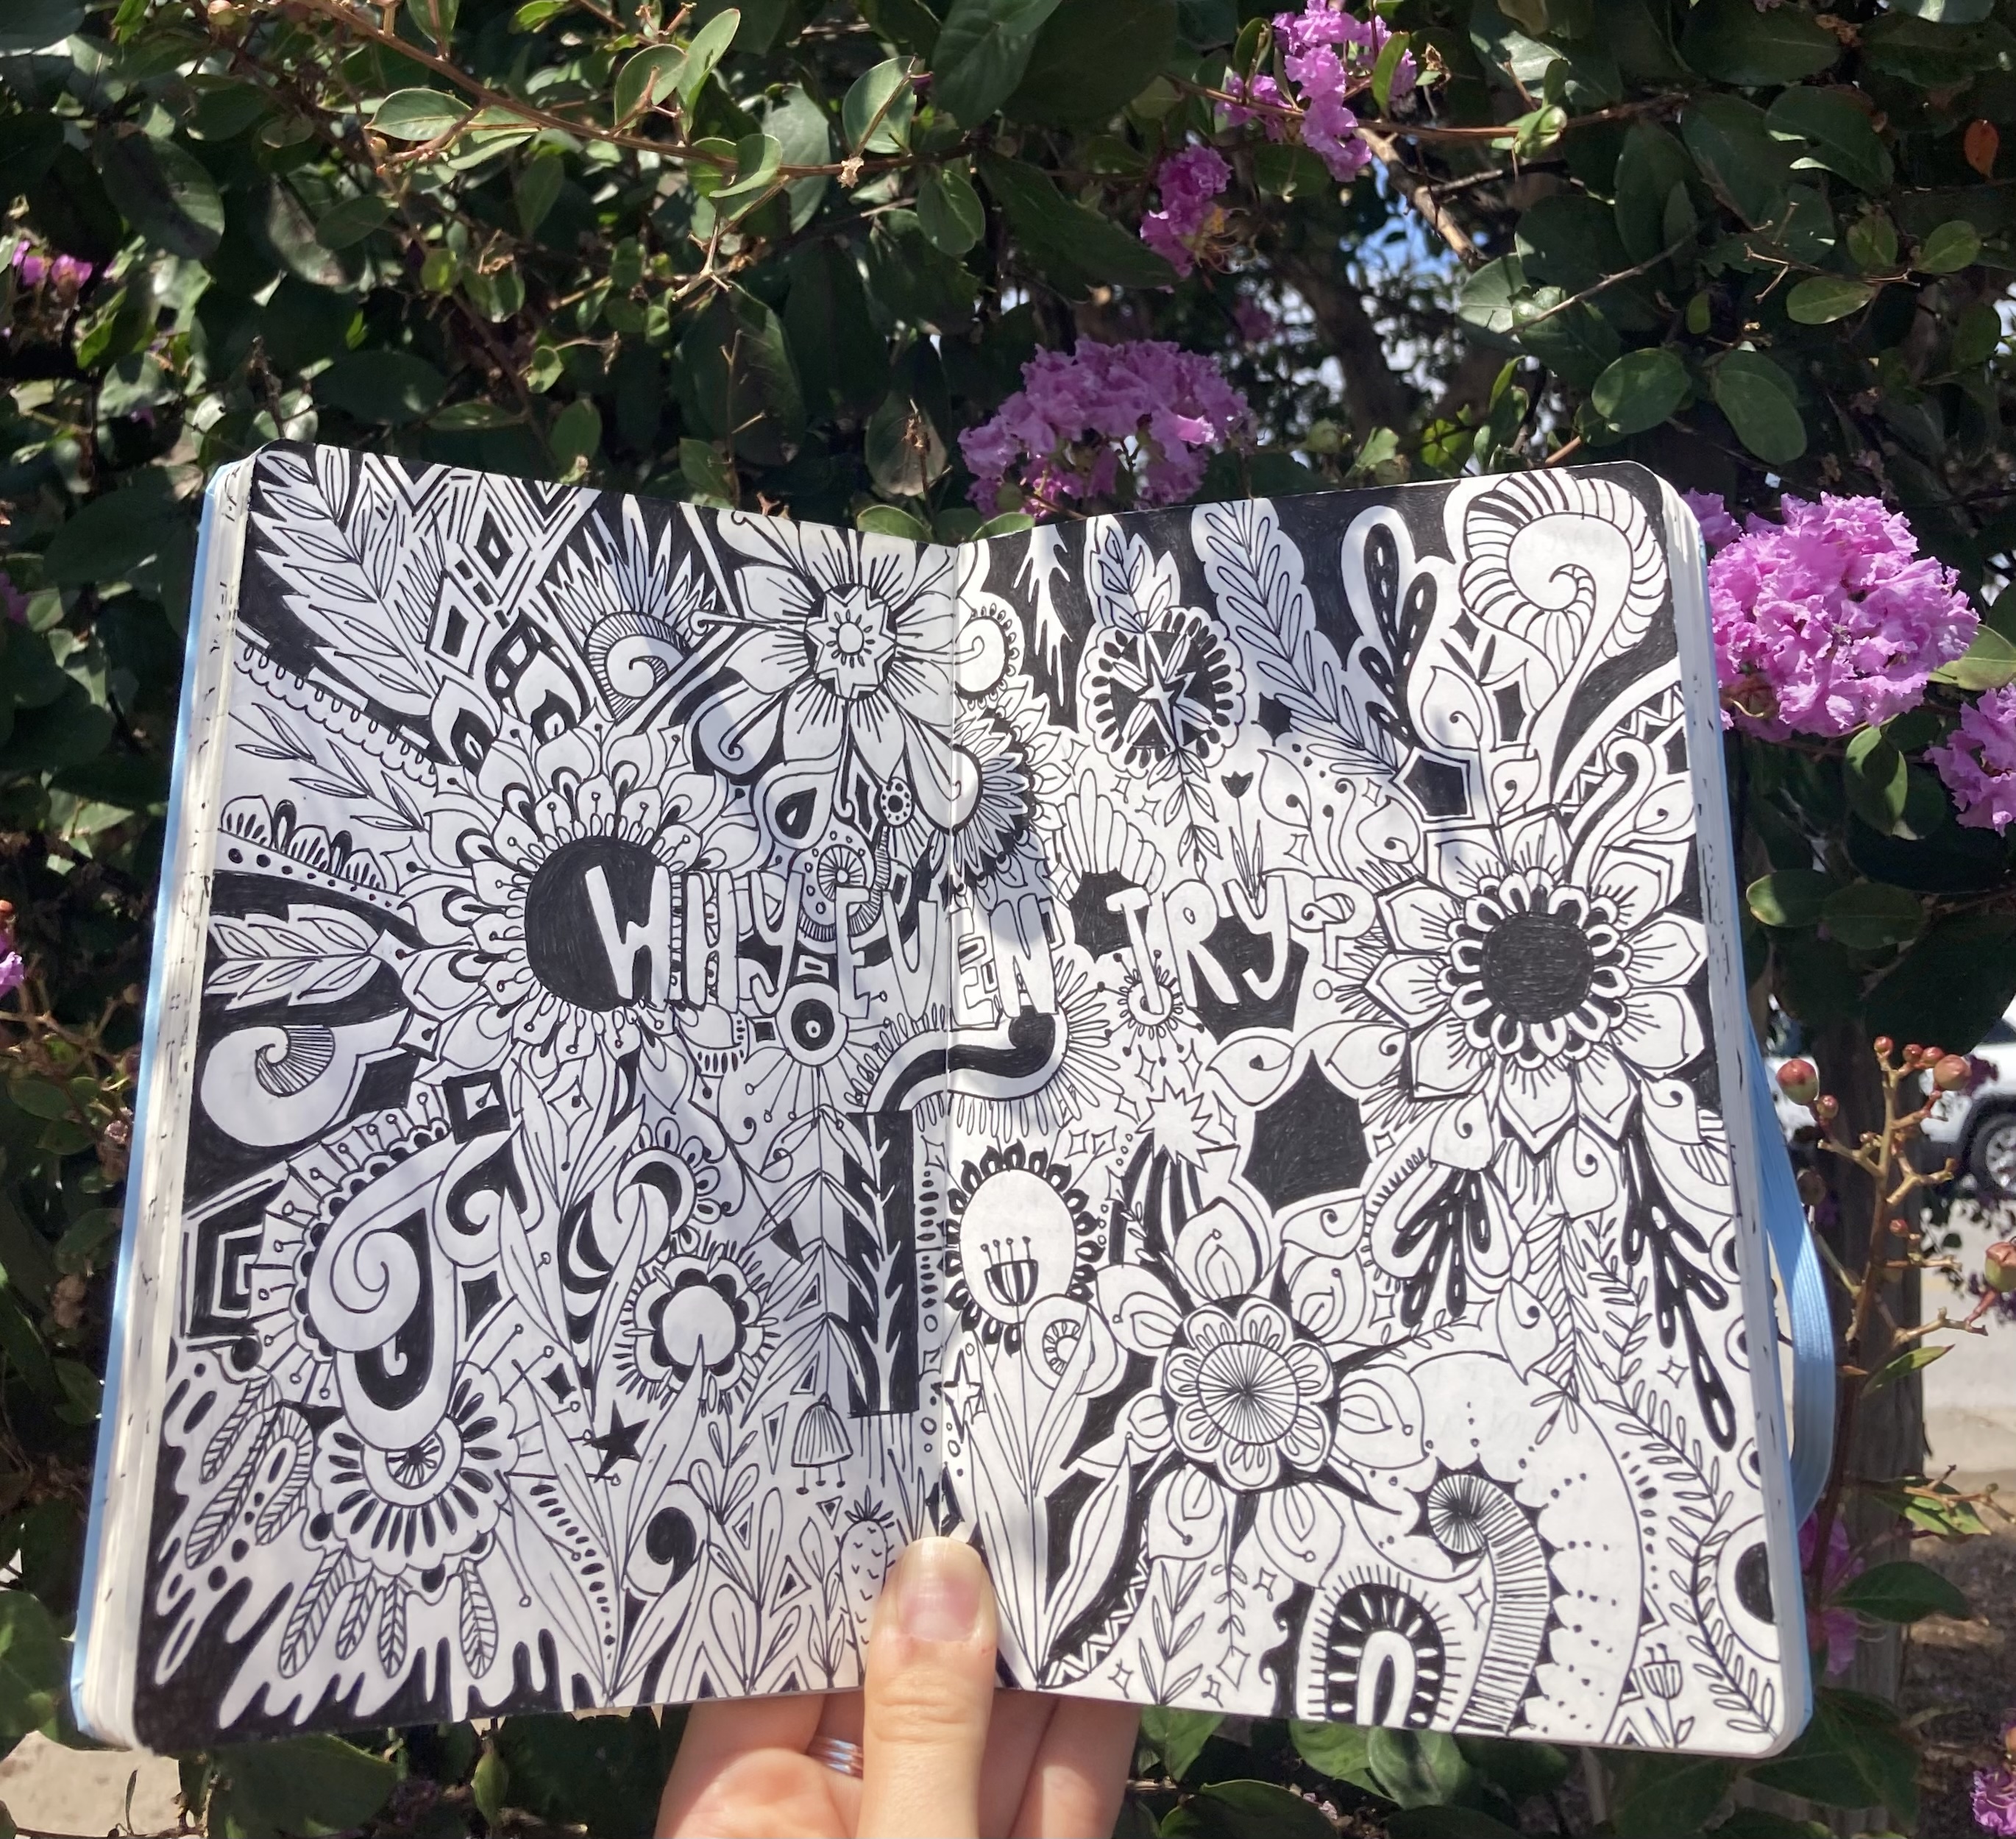 WHY EVEN TRY?